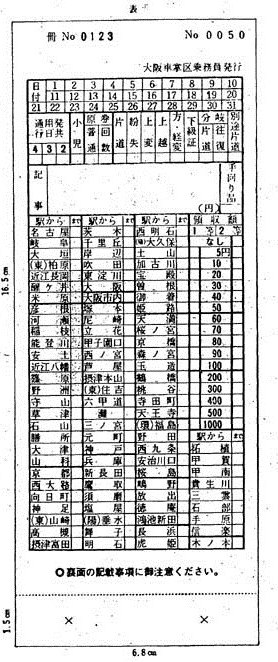 表
冊 No 0123 No 0050
大阪車掌区乗務員発行
日 1 2 3 4 5 6 7 8 9 10
付 11 12 13 14 15 16 17 18 19 20
21 22 23 24 25 26 27 28 29 30 31
通用発行日共 小児 原券普通 券回数 片道 紛失 上変 上越 方・経変 下級証 分岐片道 岐往復 別途片道
4 3 2
記事 手回り品
(円)
駅から まで 駅から まで 駅から まで 領収額
名古屋 茨木 西明石 1等 2等
岐阜 千里丘 (陽)大久保 なし
大垣 岸辺 土山 5円
(東)柏原 吹田 加古川 10
近江長岡 東淀川 宝殿 20
醒ヶ井 大阪 曽根 30
米原 大阪市内 御着 40
彦根 塚本 姫路 50
河瀬 尼崎 天満 60
稲枝 立花 桜ノ宮 70
能登川 甲子園口 京橋 80
安土 西ノ宮 森ノ宮 90
近江八幡 芦屋 玉造 100
篠原 摂津本山 鶴橋 200
野洲 (東)住吉 桃谷 300
守山 六甲道 寺田町 400
草津 灘 天王寺 500
石山 三ノ宮 (環)福島 1000
膳所 元町 野田 駅から まで
大津 神戸 西九条 柘植
山科 兵庫 安治川口 甲賀
京都 新長田 桜島 甲南
西大路 鷹取 鴫野 貴生川
向日町 須磨 放出 三雲
神足 塩屋 徳庵 石部
(東)山崎 (陽)垂水 鴻池新田 手原
高槻 舞子 長浜 信楽
摂津富田 明石 虎姫 木ノ本
◎裏面の記載事項に御注意ください。
16.5cm
1.5cm
6.8cm